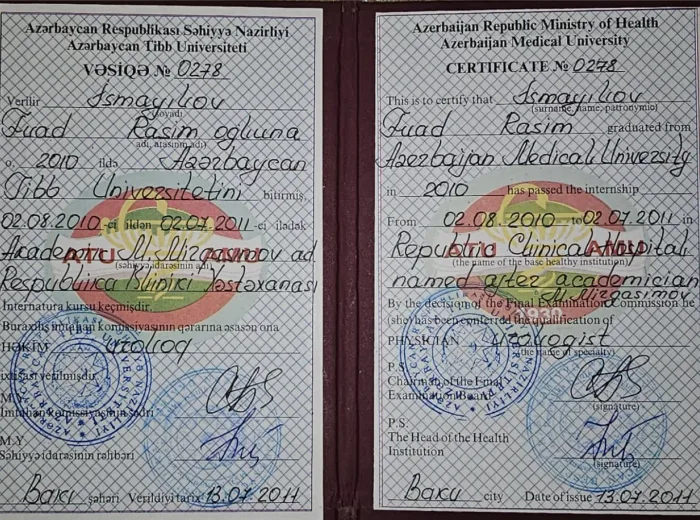 Azərbaycan Respublikası Səhiyyə Nazirliyi
Azərbaycan Tibb Universiteti
VƏSİQƏ № 0278
Verilir İsmayılov
(soyadı)
Fuad Rasim oğluna
adı, atasının adı)
o, 2010 ildə Azərbaycan
Tibb Universitetini bitirmiş,
02.08.2010-ci ildən 02.07.2011-ci ilədək
Akademik M.Mirqasımov ad.
(səhiyyə idarəsinin adı)
Respublika Klinik Xəstəxanası
İnternatura kursu keçmişdir.
Buraxılış imtahan komissiyasının qərarına əsasən ona
HƏKİM uroloq
ixtisası verilmişdir.
M.Y
İmtahan komissiyasının sədri
M.Y
Səhiyyə idarəsinin rəhbəri
Bakı şəhəri Verildiyi tarix 13.07.2011
ATU AMU
Azerbaijan Republic Ministry of Health
Azerbaijan Medical University
CERTIFICATE № 0278
This is to certify that İsmayılov
(surname, name, patronymio)
Fuad Rasim graduated from
Azerbaijan Medical University
in 2010 has passed the internship
From 02.08.2010 to 02.07.2011 in
Republic Clinical Hospital
(the name of the base healthy institution)
named after academician
M.Mirgasimov
By the decision of the Final Examination Commission he
(she) has been conferred the qualification of
PHYSICIAN Urologist
(the name of specialty)
P.S.
Chairman of the Final
Examination Board
(signature)
P.S.
The Head of the Health
Institution
(signature)
Baku city Date of issue 13.07.2011
ATU AMU
1930